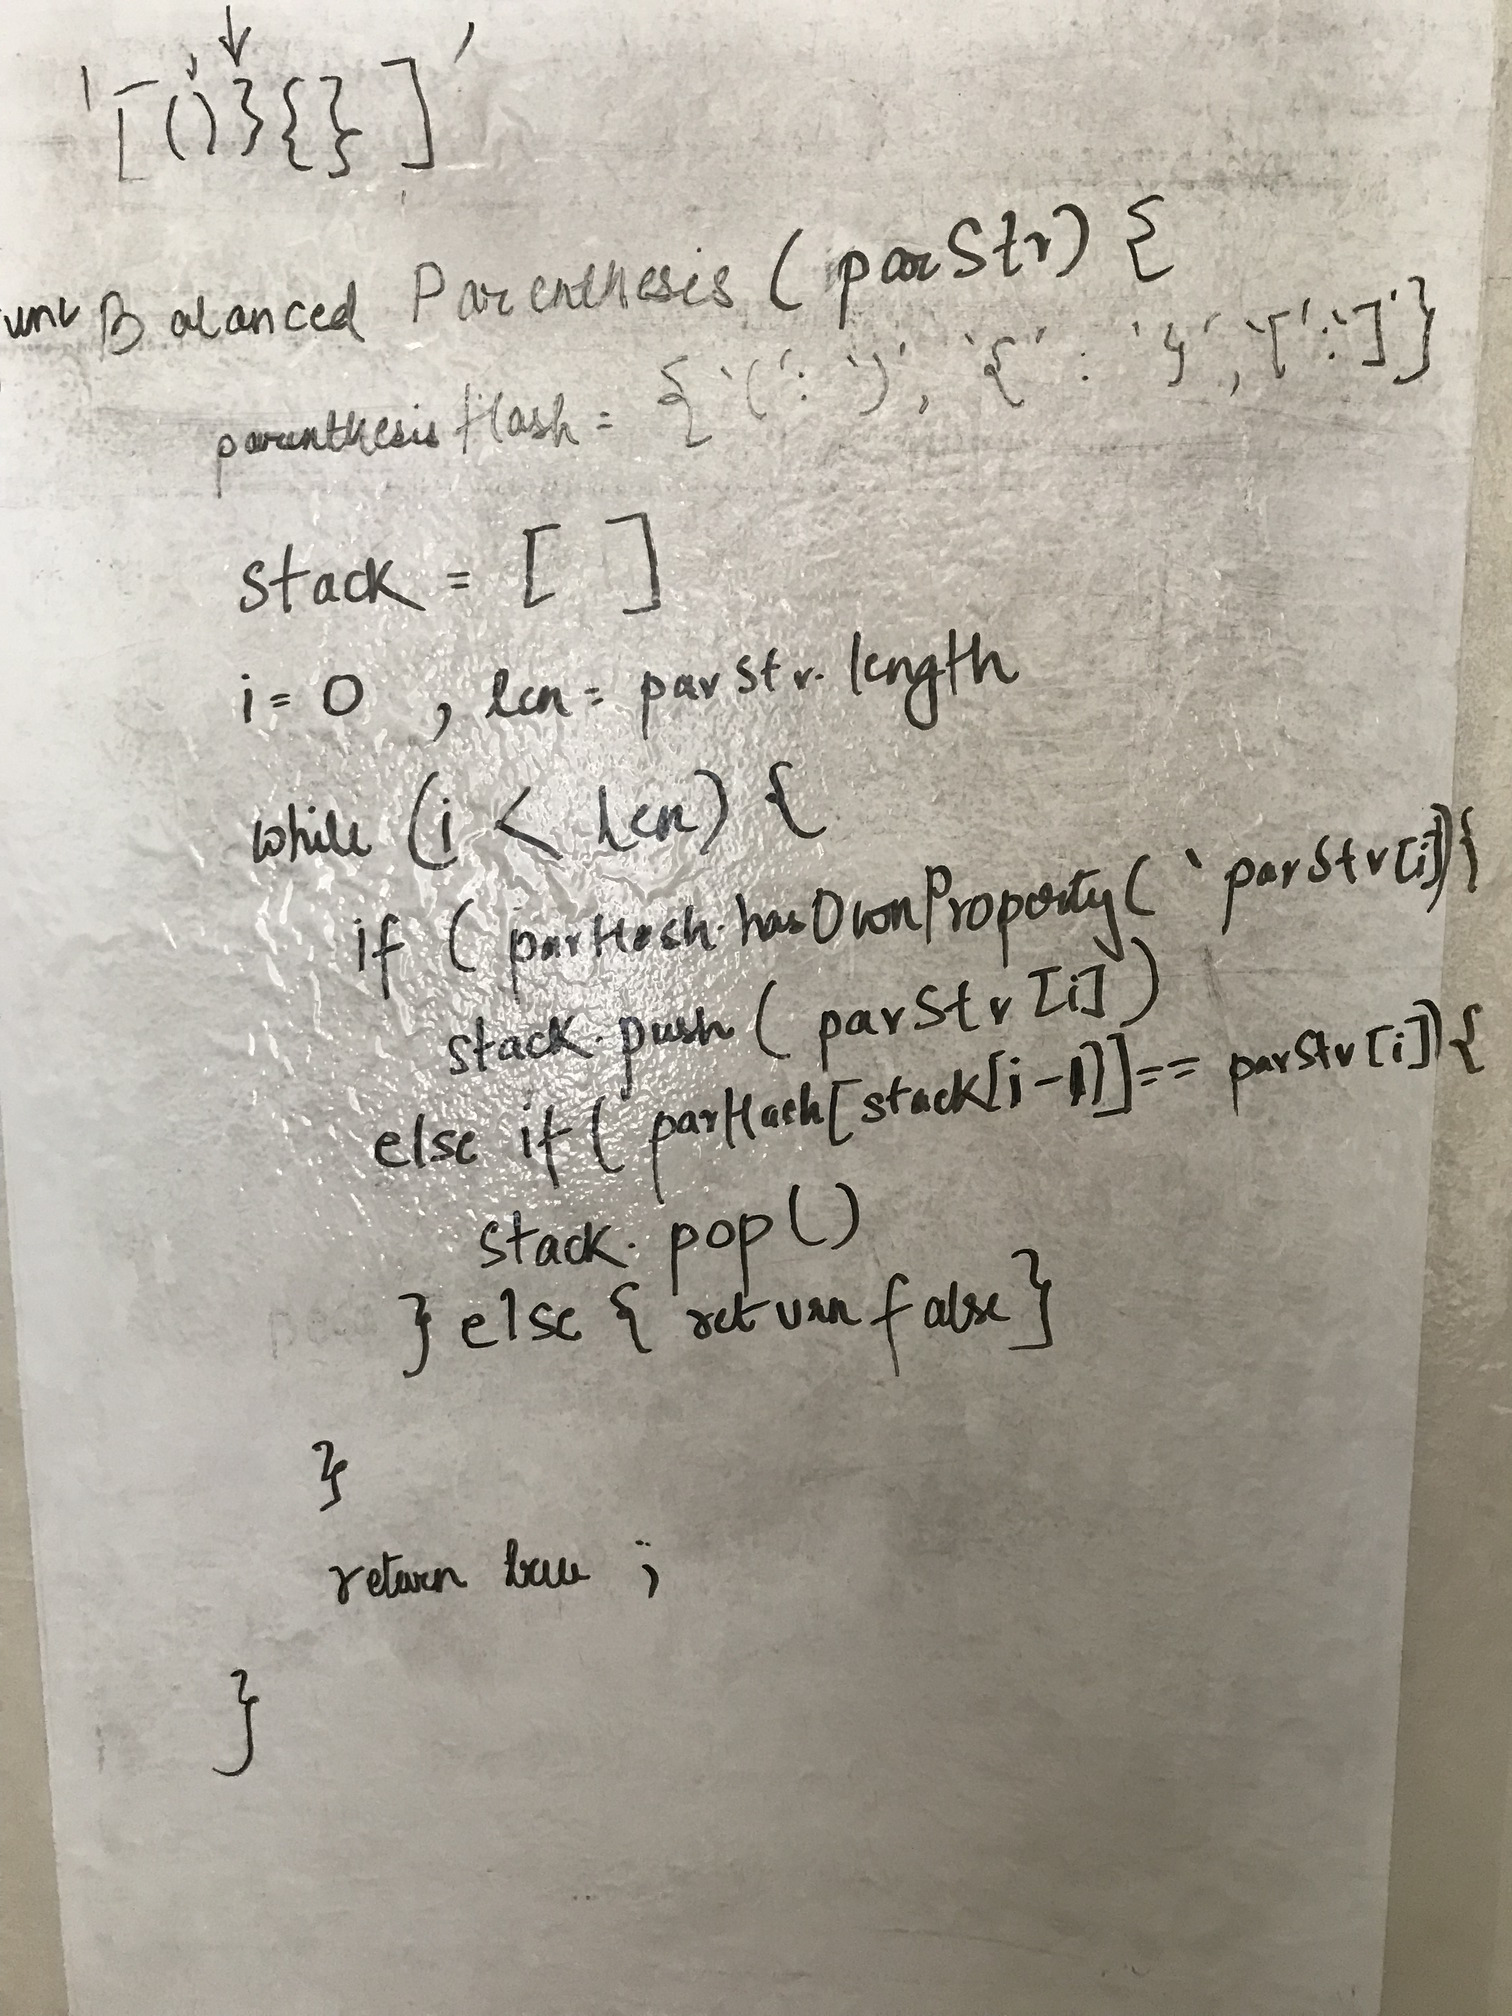 '[()}{}]'
func Balanced Parenthesis (parStr) {
parenthesisHash = {'(':')', '{':'}', '[':']'}
stack = [ ]
i=0 , len= parStr.length
while (i < len) {
if ( parHash.hasOwnProperty( ' parStr[i]){
stack.push( parStr[i])
else if( parHash[stack[i-1]]== parStr[i]){
stack.pop()
} else { return false}
}
return true ;
}